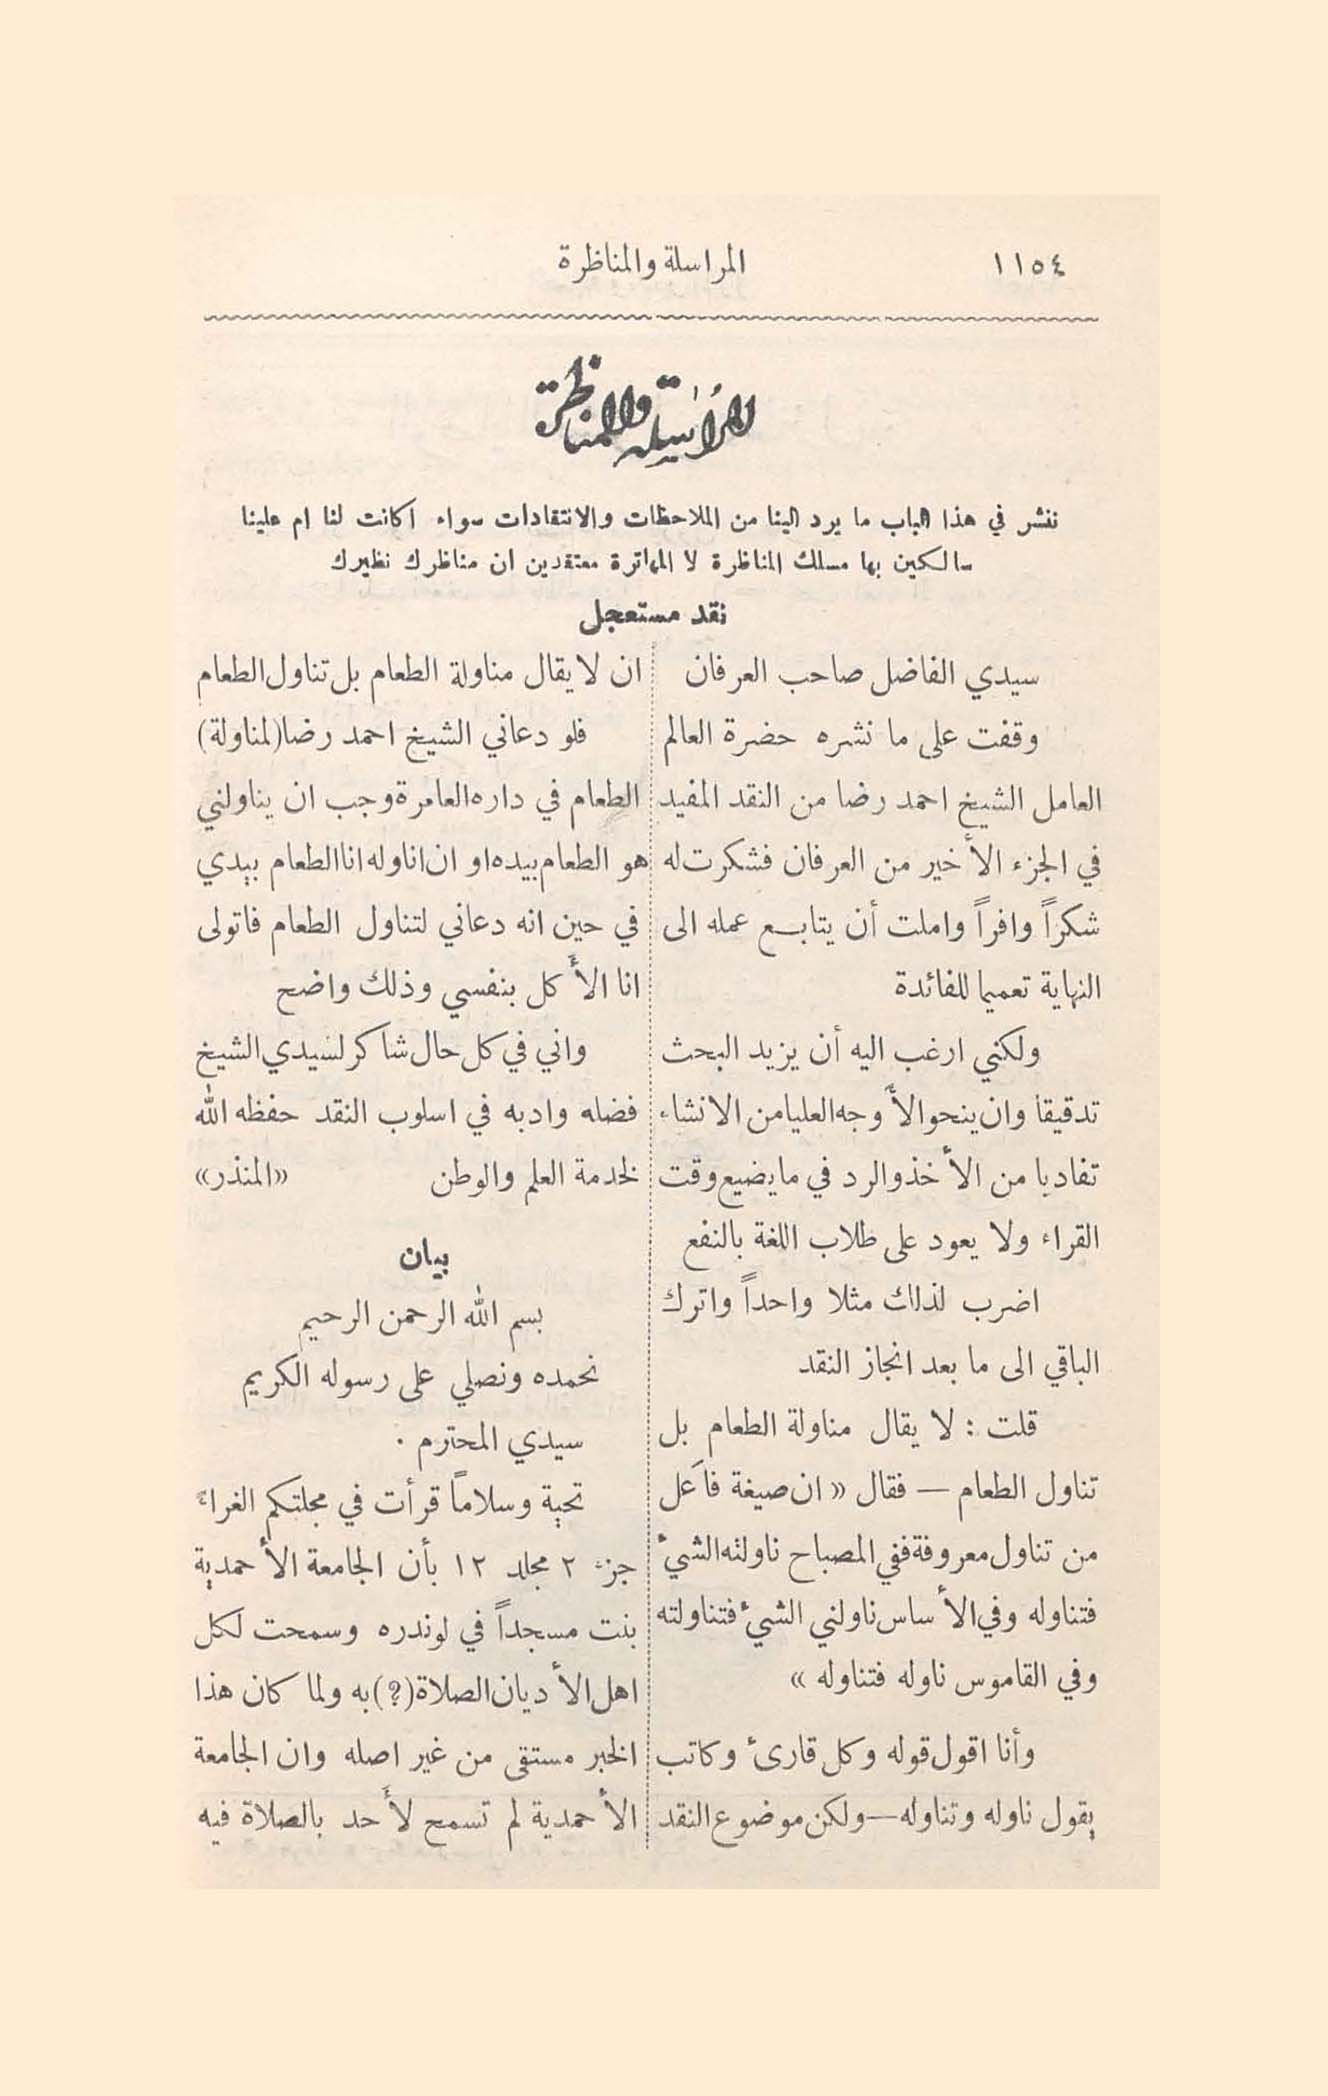 ١١٥٤
المراسلة والمناظرة
المراسلة والمناظرة
ننشر في هذا الباب ما يرد الينا من الملاحظات والانتقادات سواء اكانت لنا ام علينا
سالكين بها مسلك المناظرة لا المهاترة معتقدين ان مناظرك نظيرك
نقد مستعجل
سيدي الفاضل صاحب العرفان
وقفت على ما نشره حضرة العالم
العامل الشيخ احمد رضا من النقد المفيد
في الجزء الأخير من العرفان فشكرت له
شكراً وافراً واملت أن يتابع عمله الى
النهاية تعميما للفائدة
ولكنني ارغب اليه أن يزيد البحث
تدقيقا وان ينحو الأوجه العليا من الانشاء
تفاديا من الأخذ والرد في ما يضيع وقت
القراء ولا يعود على طلاب اللغة بالنفع
اضرب لذلك مثلا واحداً واترك
الباقي الى ما بعد انجاز النقد
قلت : لا يقال مناولة الطعام بل
تناول الطعام — فقال « ان صيغة فاَعل
من تناول معروفة ففي المصباح ناولته الشيء
فتناوله وفي الأساس ناولني الشيء فتناولته
وفي القاموس ناوله فتناوله »
وأنا اقول قوله وكل قارىء وكاتب
يقول ناوله وتناوله — ولكن موضوع النقد
ان لا يقال مناولة الطعام بل تناول الطعام
فلو دعاني الشيخ احمد رضا (لمناولة)
الطعام في داره العامرة وجب ان يناولني
هو الطعام بيده او ان اناوله انا الطعام بيدي
في حين انه دعاني لتناول الطعام فاتولى
انا الأكل بنفسي وذلك واضح
واني في كل حال شاكر لسيدي الشيخ
فضله وادبه في اسلوب النقد حفظه الله
لخدمة العلم والوطن «المنذر»
بيان
بسم الله الرحمن الرحيم
نحمده ونصلي على رسوله الكريم
سيدي المحترم .
تحية وسلاماً قرأت في مجلتكم الغراء
جزء ٢ مجلد ١٢ بأن الجامعة الأحمدية
بنت مسجداً في لوندره وسمحت لكل
اهل الأديان الصلاة (؟) به ولما كان هذا
الخبر مستقى من غير اصله وان الجامعة
الأحمدية لم تسمح لأحد بالصلاة فيه